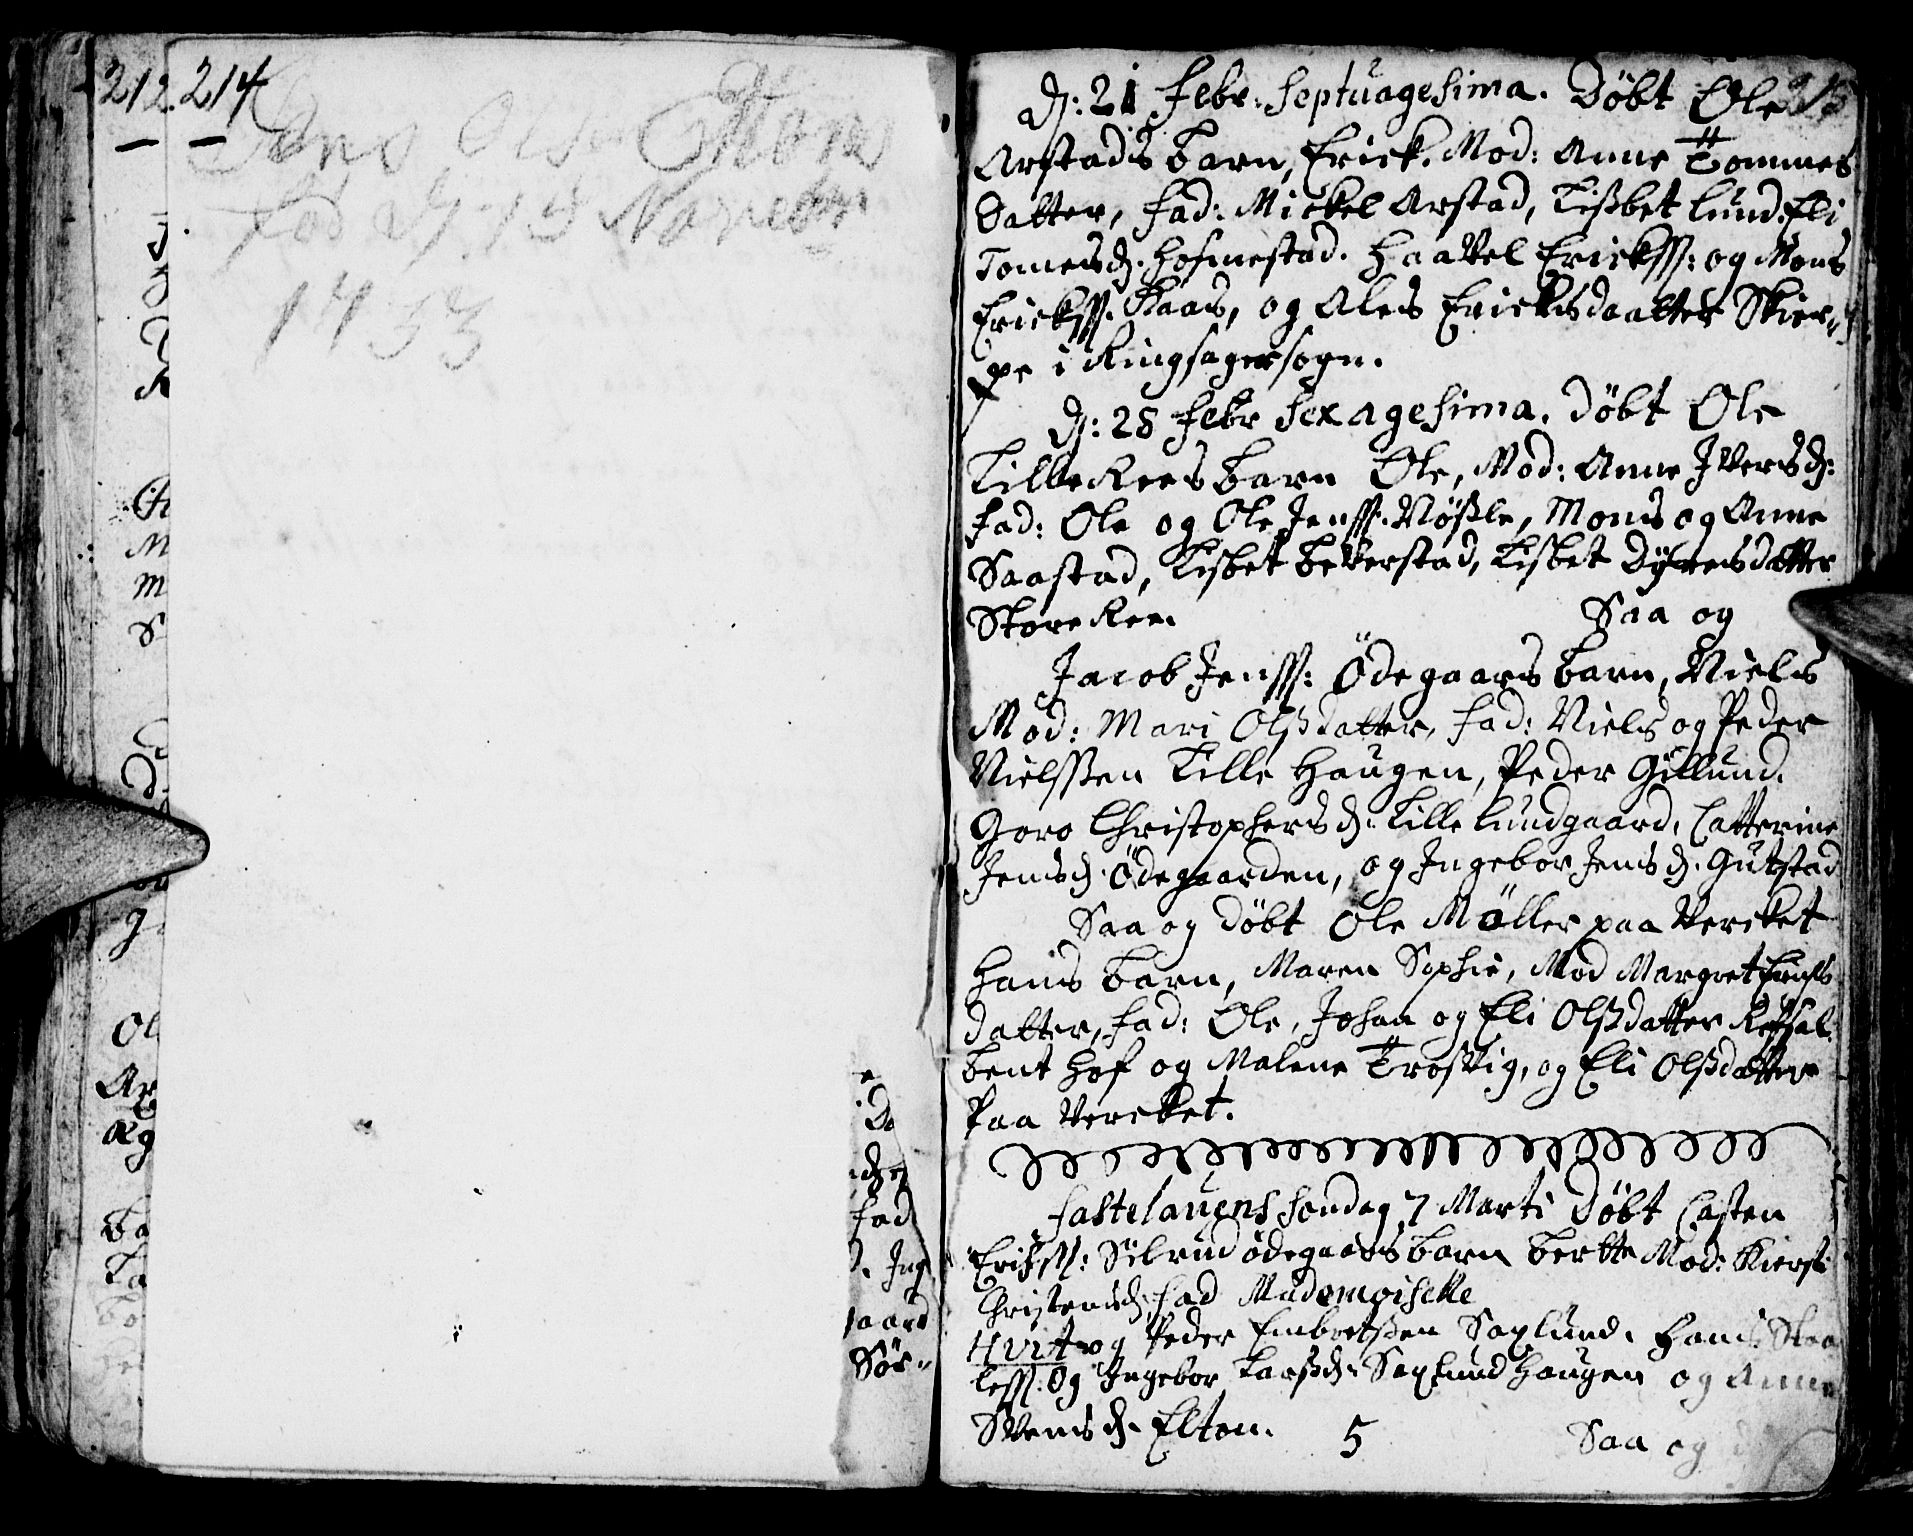 212. 214
Jens Olsen
fød d 13 Novembr
1733
215
D: 21 Febr: Septuagesima. Døbt Ole
Arstads barn, Erick. Mod: Anne Tommes
Datter, fad: Mickel Arstad, Lisbet Lund. Eli
Tomesd. Hofmestad. Haavel Erickss: og Mons
Erickss. Kaas, og Ales Ericksdaatter Skier-
pe i Ringsagersogn.
D: 28 Febr Sexagesima. Døbt Ole
Lille Rees barn Ole, Mod: Anne Iversd:
fad: Ole og Ole Jenss. Nøsle, Mons og Anne
Saastad, Lisbet Beverstad, Lisbet Dyresdatter
Store Ree. Saa og
Jacob Jenss: Ödegaars barn, Niels
Mod: Mari Olsdatter, fad: Niels og Peder
Nielssen Lille Haugen, Peder Gillund.
Goro Christophersd. Lille Lundgaard, Catterine
Jensd. Ödegaarden, og Ingebor Jensd. Gutstad
Saa og døbt Ole Møller paa Vercket
Hans barn, Maren Sophie, Mod Margret
datter, fad: Ole, Johan og Eli Olsdatter
bent Hof og Malene Trostvig, og Eli Olsdatter
Paa Vercket.
Fastelauens Søndag 7 Marti Døbt Casten
Erichss: Silrud ödegaars barn Berthe Mod: Kiersti
Christensd. fad Mademoiselle
Hvit og Peder Embretsen Saxlund. Hans
less. Og Ingebor Larsd. Saxlund Haugen og Anne
Svensd. Elton. 5 Saa og